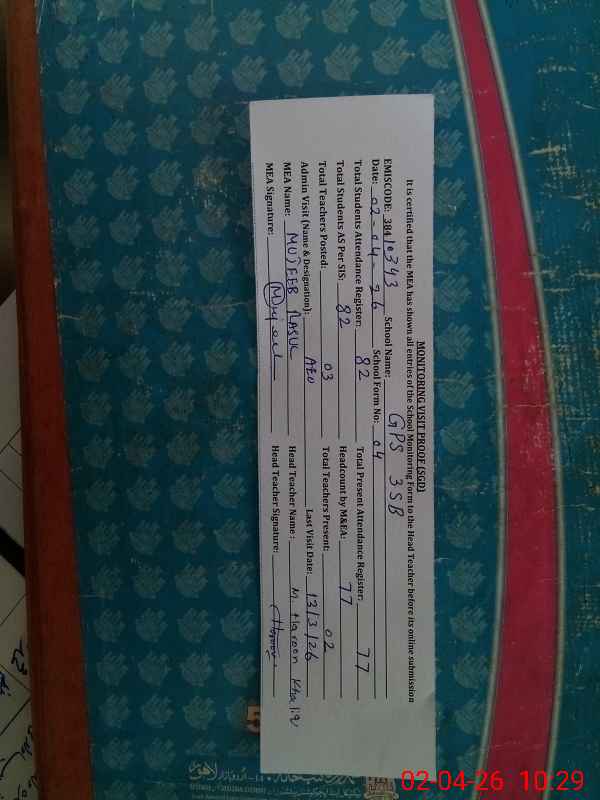 MONITORING VISIT PROOF (SGD)
It is certified that the MEA has shown all entries of the School Monitoring Form to the Head Teacher before its online submission
EMISCODE: 38410343 School Name: GPS 3SB
Date: 02-04-26 School Form No: 04
Total Students Attendance Register: 82 Total Present Attendance Register: 77
Total Students AS Per SIS: 82 Headcount by M&EA: 77
Total Teachers Posted: 03 Total Teachers Present: 02
Admin Visit (Name & Designation): AEO Last Visit Date: 13/3/26
MEA Name: MUJEEB RASUL Head Teacher Name: M. Haroon Khaliq
MEA Signature: Mujeeb Head Teacher Signature: Haroon
5
02-04-26 10:29